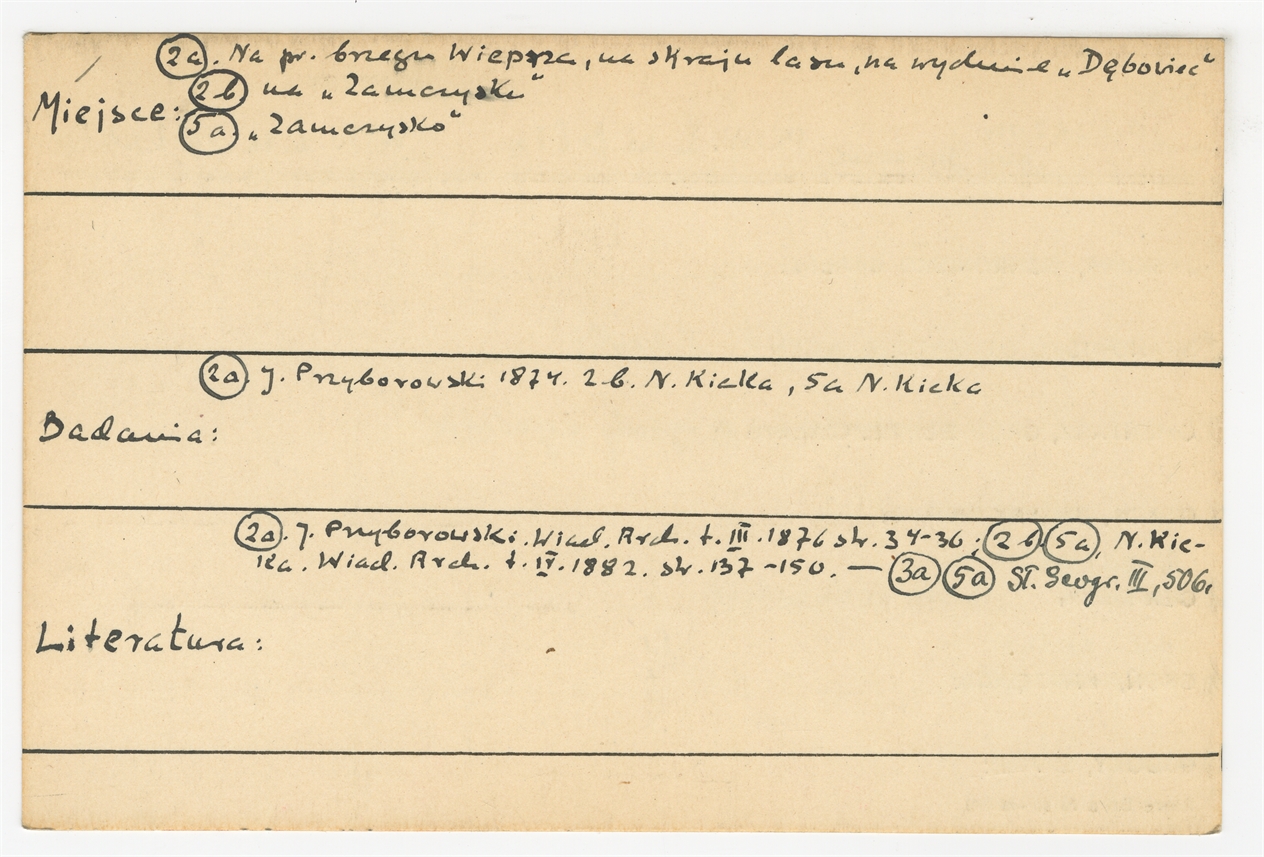 2a. Na pr. brzegu Wieprza, na skraju lasu, na wydmie „Dębowiec“
2b na „Zamczysku“
Miejsce:
5a. „Zamczysko“
2a. J. Przyborowski 1874. 2b. N. Kicka, 5a N. Kicka
Badania:
2a. J. Przyborowski. Wiad. Arch. t. III. 1876 str. 34-36; 2b 5a. N. Kic-
ka. Wiad. Arch. t. IV. 1882. str. 137-150. — 3a 5a Sł. Geogr. III, 506.
Literatura: